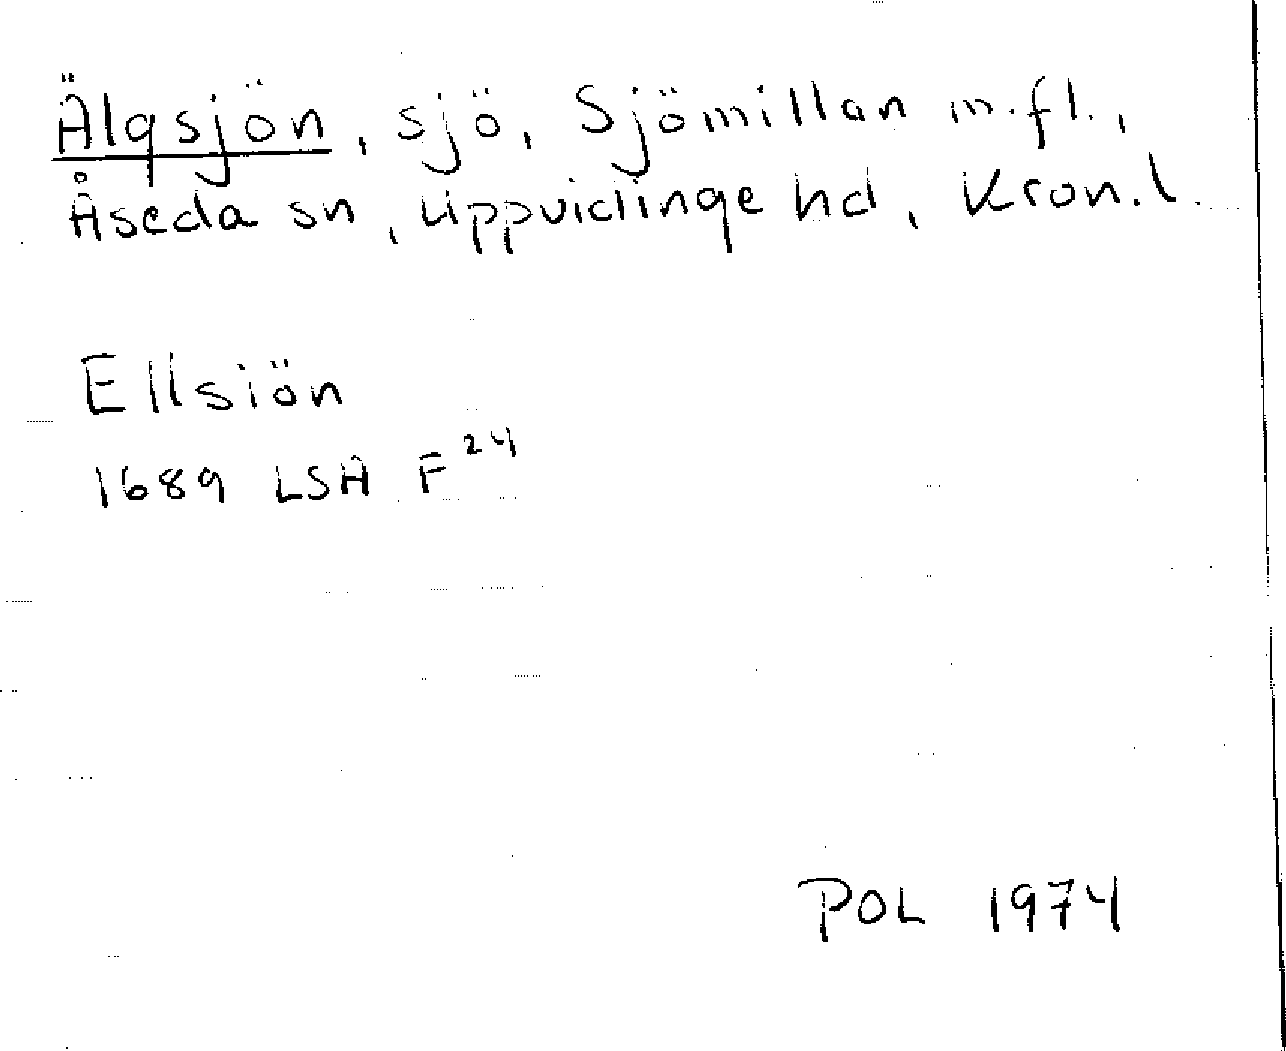 Älgsjön, sjö, Sjömillan m.fl.,
Åseda sn, Uppvidinge hd, Kron.l.
Ellsiön
1689 LSA F 24
POL 1974